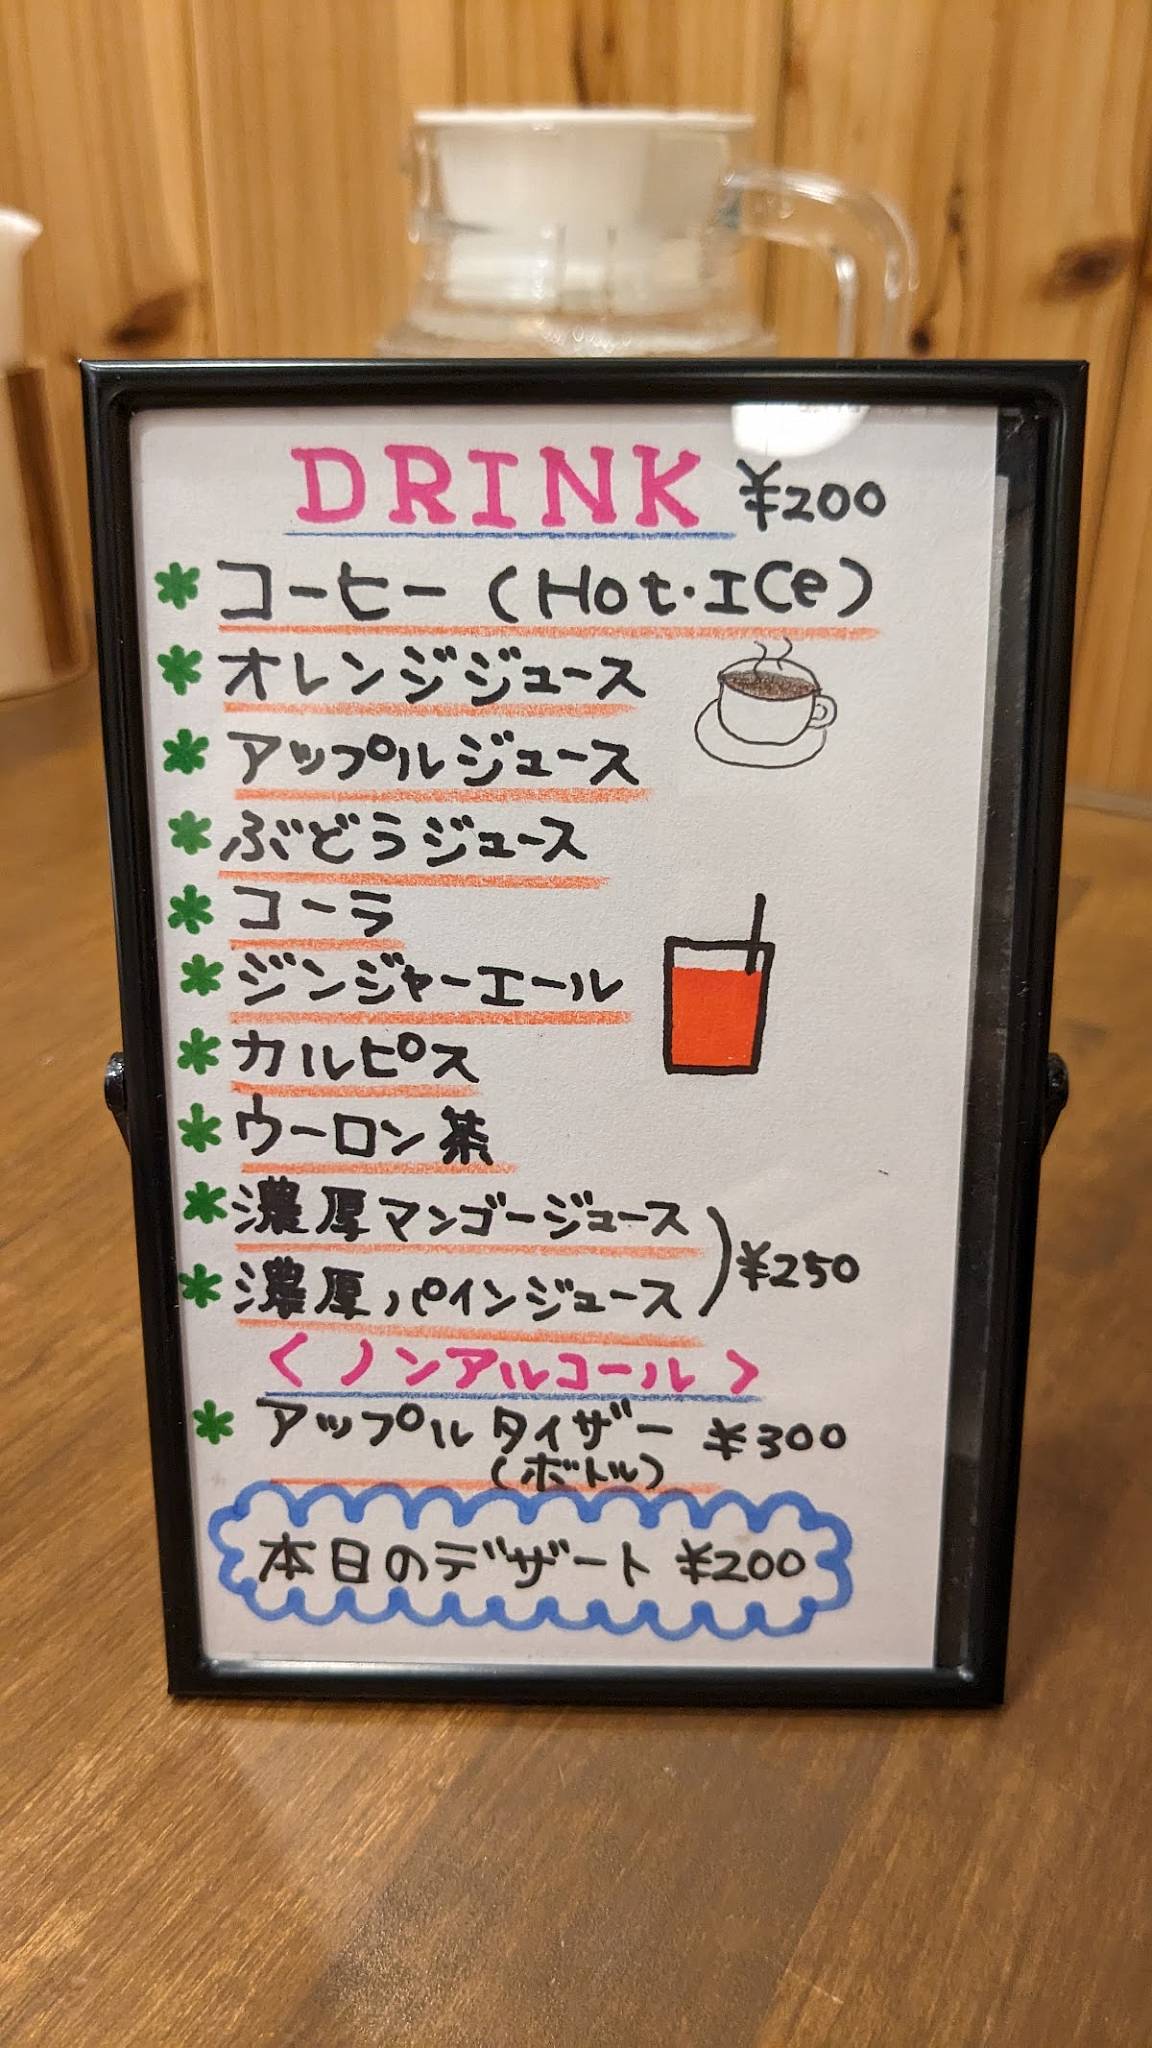 DRINK ¥200
コーヒー(Hot・ICe)
オレンジジュース
アップルジュース
ぶどうジュース
コーラ
ジンジャーエール
カルピス
ウーロン茶
濃厚マンゴージュース
濃厚パインジュース
¥250
<ノンアルコール>
アップルタイザー ¥300
(ボトル)
本日のデザート ¥200